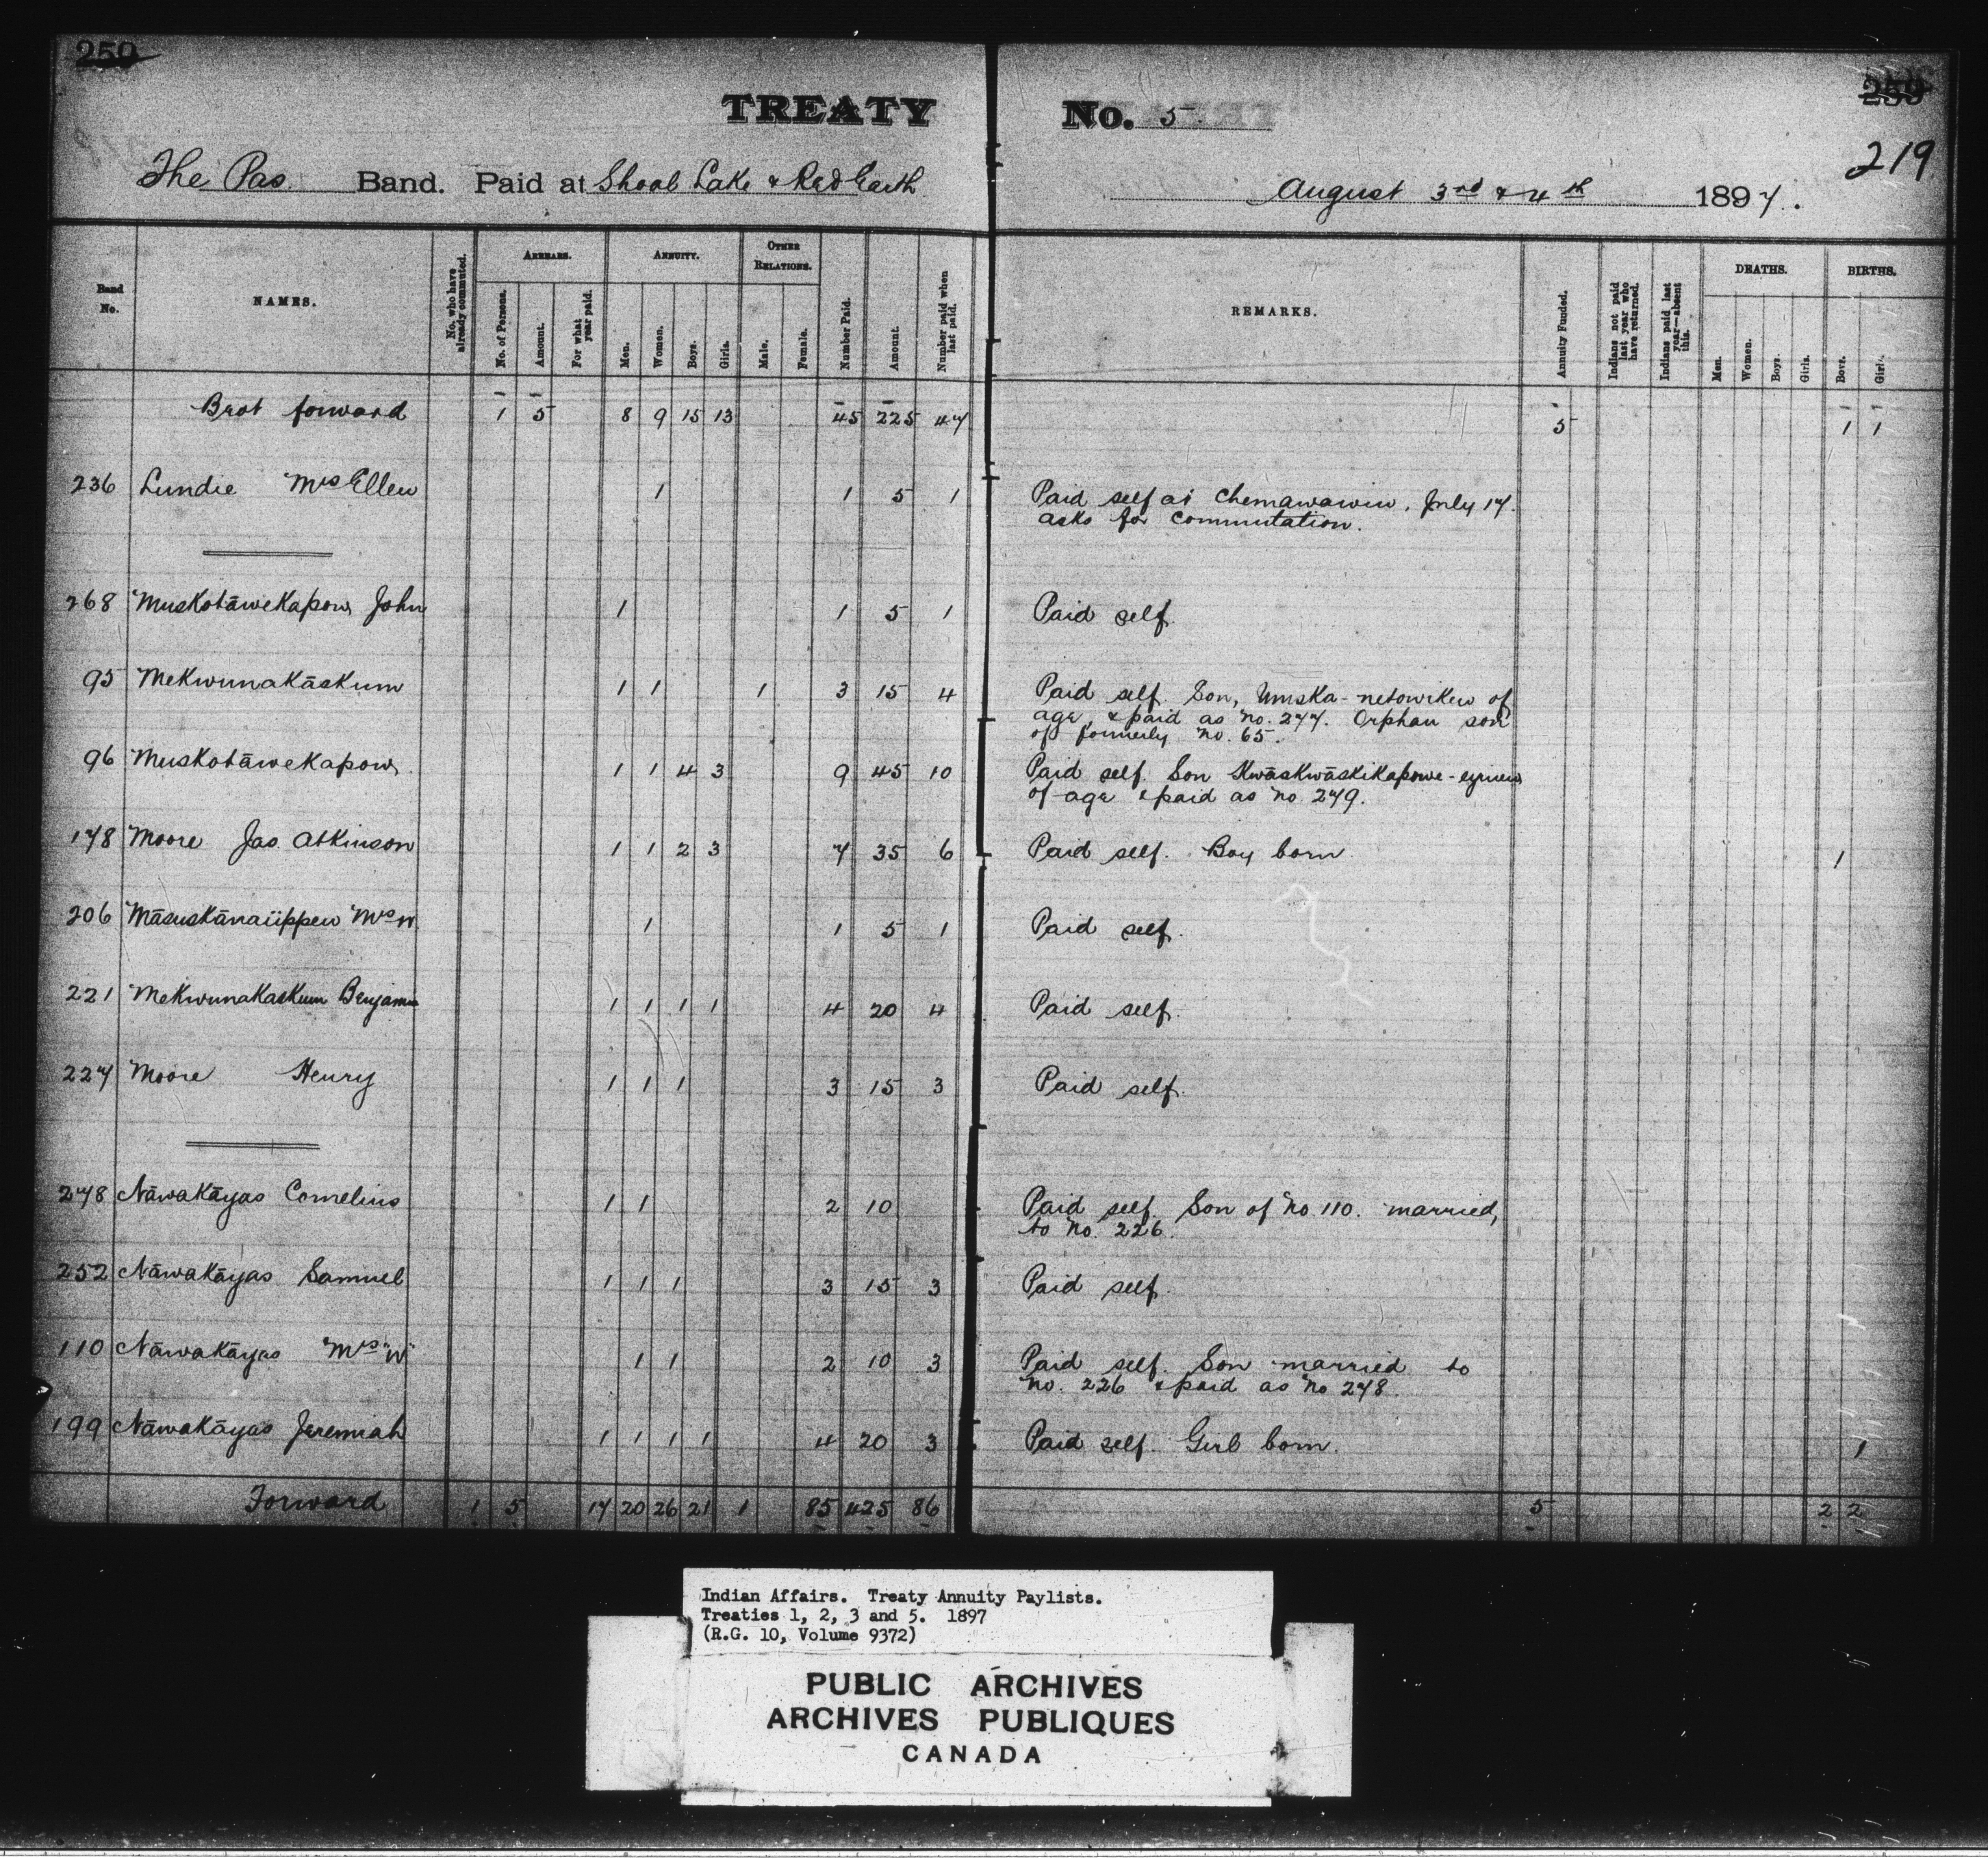 259
TREATY No. 5
259
219
The Pas Band. Paid at Shoal Lake & Red Earth August 3rd & 4th 1897.
Band No.
NAMES.
No. who have already commuted.
ARREARS.
No. of Persons.
Amount.
For what year paid.
ANNUITY.
Men.
Women.
Boys.
Girls.
OTHER RELATIONS.
Male.
Female.
Number Paid.
Amount.
Number paid when last paid.
REMARKS.
Annuity Funded.
Indians not paid last year who have returned.
Indians paid last year—absent this.
DEATHS.
Men.
Women.
Boys.
Girls.
BIRTHS.
Boys.
Girls.
Brot forward 1 5 8 9 15 13 45 225 47 5 1 1
236 Lundie Mrs Ellen 1 1 5 1 Paid self at Chemawawin, July 17.
asks for commutation.
268 Muskotāwekapow John 1 1 5 1 Paid self.
95 Mekwunakāskum 1 1 1 3 15 4 Paid self. Son, Umska-netowikew of
age, & paid as No. 277. Orphan son
of formerly No. 65.
96 Muskotāwekapow 1 1 4 3 9 45 10 Paid self. Son Kwāskwāskikapowe-eyinew
of age & paid as No. 279.
178 Moore Jas. Atkinson 1 1 2 3 7 35 6 Paid self. Boy born 1
206 Māsuskānaiippew Mrs W. 1 1 5 1 Paid self.
221 Mekwunakaskum Benjamin 1 1 1 1 4 20 4 Paid self.
227 Moore Henry 1 1 1 3 15 3 Paid self.
278 Nāwakāyas Cornelius 1 1 2 10 Paid self. Son of No. 110. married,
to No. 226.
252 Nāwakāyas Samuel 1 1 1 3 15 3 Paid self.
110 Nāwakāyas Mrs "W" 1 1 2 10 3 Paid self. Son married to
No. 226 & paid as No 278.
199 Nāwakāyas Jeremiah 1 1 1 1 4 20 3 Paid self. Girl born. 1
Forward 1 5 17 20 26 21 1 85 425 86 5 2 2
Indian Affairs. Treaty Annuity Paylists.
Treaties 1, 2, 3 and 5. 1897
(R.G. 10, Volume 9372)
PUBLIC ARCHIVES
ARCHIVES PUBLIQUES
CANADA